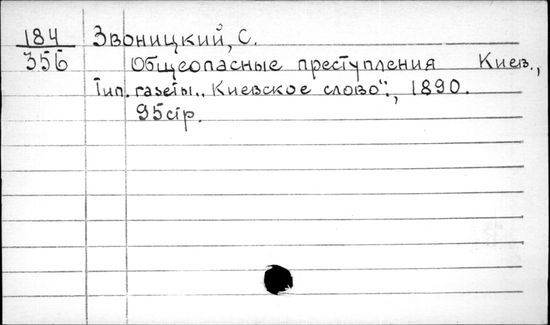 184 Звоницкий, С.
356 Общеопасные преступления Киев.,
Тип. газеты „Киевское слово“, 1890.
95 стр.